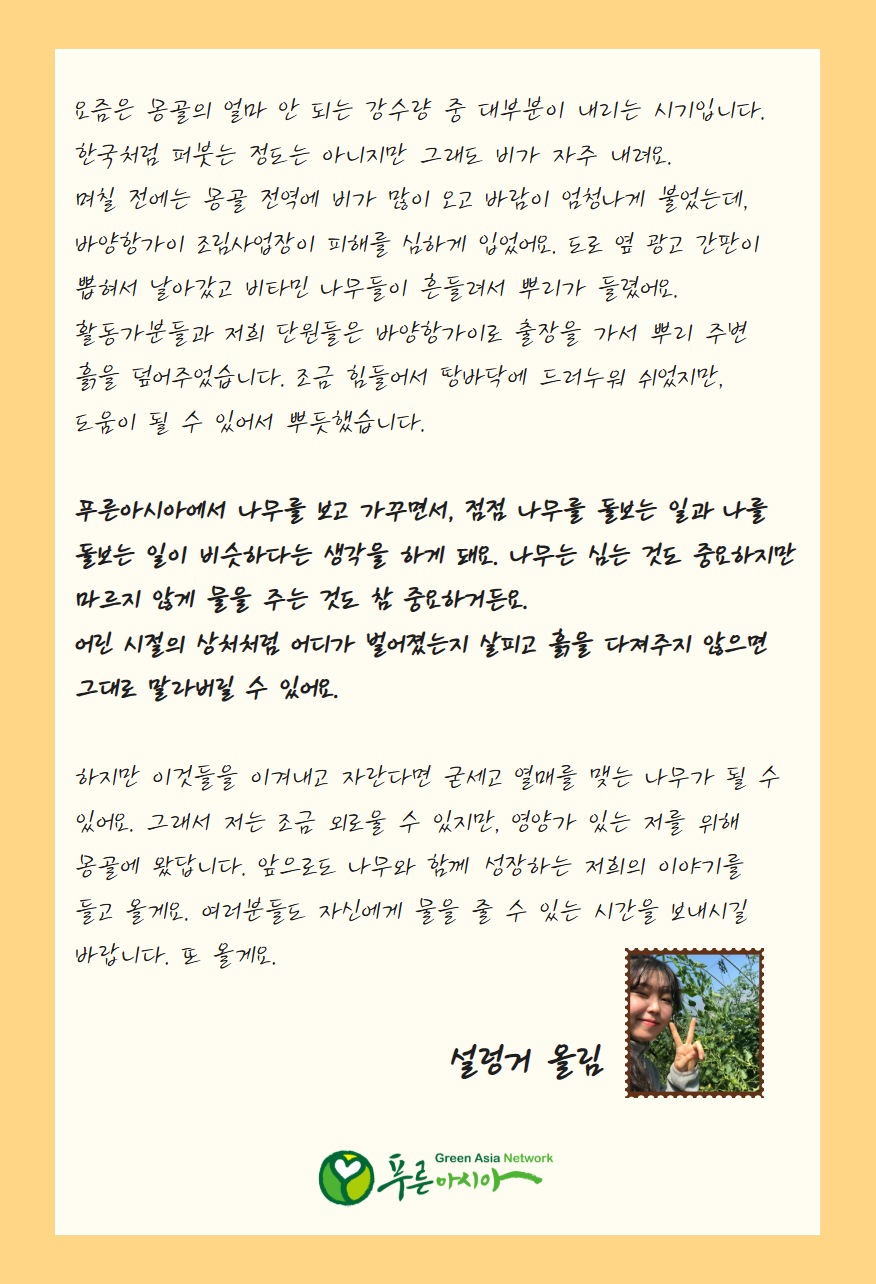 요즘은 몽골의 얼마 안 되는 강수량 중 대부분이 내리는 시기입니다.
한국처럼 퍼붓는 정도는 아니지만 그래도 비가 자주 내려요.
며칠 전에는 몽골 전역에 비가 많이 오고 바람이 엄청나게 불었는데,
바양항가이 조림사업장이 피해를 심하게 입었어요. 도로 옆 광고 간판이
뽑혀서 날아갔고 비타민 나무들이 흔들려서 뿌리가 들렸어요.
활동가분들과 저희 단원들은 바양항가이로 출장을 가서 뿌리 주변
흙을 덮어주었습니다. 조금 힘들어서 땅바닥에 드러누워 쉬었지만,
도움이 될 수 있어서 뿌듯했습니다.
푸른아시아에서 나무를 보고 가꾸면서, 점점 나무를 돌보는 일과 나를
돌보는 일이 비슷하다는 생각을 하게 돼요. 나무는 심는 것도 중요하지만
마르지 않게 물을 주는 것도 참 중요하거든요.
어린 시절의 상처처럼 어디가 벌어졌는지 살피고 흙을 다져주지 않으면
그대로 말라버릴 수 있어요.
하지만 이것들을 이겨내고 자란다면 굳세고 열매를 맺는 나무가 될 수
있어요. 그래서 저는 조금 외로울 수 있지만, 영양가 있는 저를 위해
몽골에 왔답니다. 앞으로도 나무와 함께 성장하는 저희의 이야기를
들고 올게요. 여러분들도 자신에게 물을 줄 수 있는 시간을 보내시길
바랍니다. 또 올게요.
설렁거 올림
Green Asia Network
푸른아시아